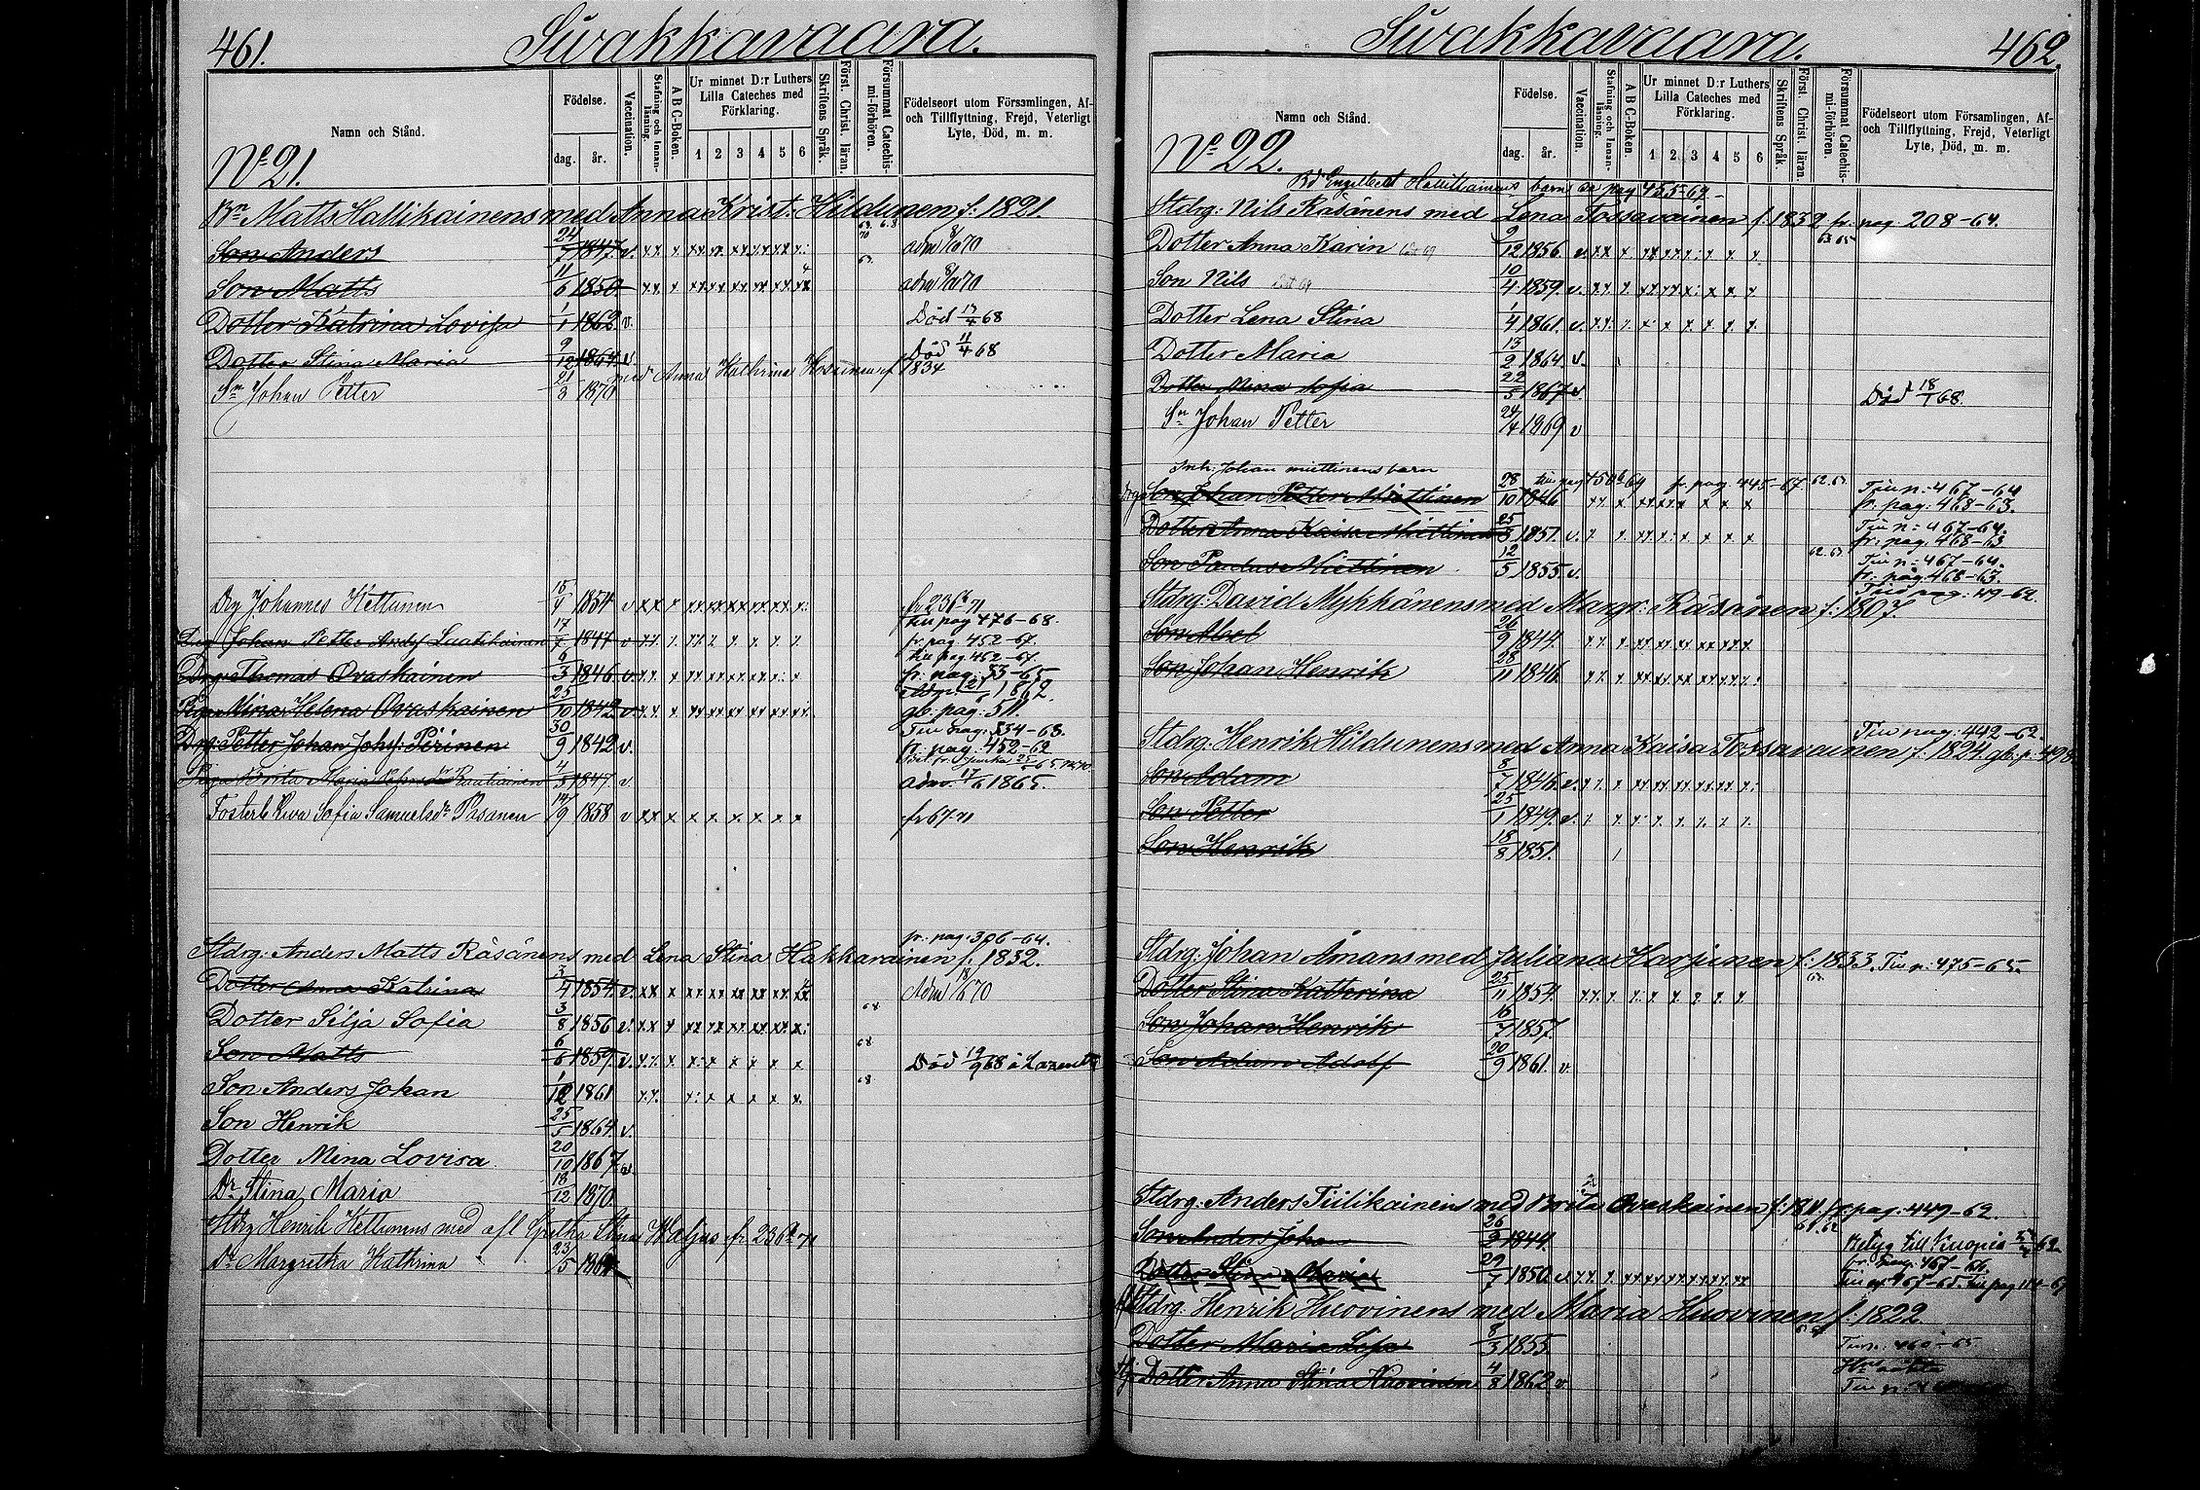 461.
Siwakkavaara.
Namn och Stånd.
Födelse.
dag.
år.
Vaccination.
Stafning och Innan-läsning.
A B C-Boken.
Ur minnet D:r Luthers Lilla Cateches med Förklaring.
1 2 3 4 5 6
Skriftens Språk.
Först. Christ. läran.
Försummat Catechis-mi-förhören.
Födelseort utom Församlingen, Af- och Tillflyttning, Frejd, Veterligt Lyte, Död, m. m.
No 21.
Bn Matts Hallikainens med Anna Krist. Hildunen f. 1821.
Son Anders 24/7 1847. v. adm 8/10 70
Son Matts 11/6 1850. adm 8/10 70
Dotter Katrina Lovisa 1/1 1862 v. Död 17/4 68
Dotter Stina Maria 9/12 1864 v. Död 11/4 68
med Anna Kathrina f 1834
Sn Johan Petter 21/3 1870
Drg Johannes Kettunen 15/4 1854 v fr 236 71
till pag 476-68.
Johan Petter Laatikainen 17/7 1844 v fr. pag. 452-67.
till pag 452-67.
Drg. Thomas Ovaskainen 6/3 1846 v fr. pag. 53-65
Piga Mina Helena Ovaskainen 25/10 1842 v. gb. pag: 511.
Drg. Petter Johan Johs: Piirinen 30/9 1842 v. fr. pag. 452-62
Piga Brita Maria 4/3 1847. v. adm. 17/6 1865.
Fosterb Eeva Sofia Samuelsdr Pasanen 14/9 1858 v fr 67 71
fr. pag. 306-64.
Stdrg: Anders Matts Räsänens med Lena Stina Hakkarainen f. 1832.
Dotter Anna Katrina 3/4 1854. v. Adm 18/6 70
Dotter Silja Sofia 3/8 1856 v. 68
Son Matts 6/6 1859. v. 68 Död 19/9 68 å Lazarett
Son Anders Johan 1/12 1861 68
Son Henrik 25/5 1864. v.
Dotter Mina Lovisa 20/10 1867. v.
Dr Stina Maria 18/12 1870
Stdrg Henrik Kettunens med afl Gretha Stina fr 236 71
Dr Margretha Kathrina 23/5
Siwakkavaara.
462.
Namn och Stånd.
Födelse.
dag.
år.
Vaccination.
Stafning och Innan-läsning.
A B C-Boken.
Ur minnet D:r Luthers Lilla Cateches med Förklaring.
1 2 3 4 5 6
Skriftens Språk.
Först. Christ. läran.
Försummat Catechis-mi-förhören.
Födelseort utom Församlingen, Af- och Tillflyttning, Frejd, Veterligt Lyte, Död, m. m.
No 22.
Bd Engelbert Hallikainens barn se pag 455-69.
Stdrg: Nils Räsänens med Lena Tossavainen f. 1832 fr. pag. 208-64.
Dotter Anna Karin 9/12 1856. v. 63 65
Son Nils 10/4 1859. v.
Dotter Lena Stina 1/4 1861. v.
Dotter Maria 13/2 1864. v.
Dotter Mina Sofia 22/5 1867. v. Död 18/1 68.
Sn Johan Petter 24/4 1869 v
Inh: Johan Miettinens barn
Drg Son Johan Petter Miettinen 28/10 1846 fr. pag. 445-67. 62.63. Till n: 467-64
fr. pag: 468-63.
Dotter Anna Kaisa Miettinen 25/3 1851. v. Till n: 467-64.
fr. pag. 468-63
Son Paulus Miettinen 12/5 1855. v. 62.63. Till n: 467-64.
fr: pag. 468-63.
Till pag: 49-62.
Stdrg: David Mykkänens med Margr. Räsänen f: 1807.
Son Abel 26/9 1844.
Son Johan Henrik 28/11 1846.
Till pag: 442-62.
Stdrg: Henrik Hildunens med Anna Kaisa Tossavainen f. 1824. gb. p. 498.
Son Adam 8/7 1846. v.
Son Petter 25/1 1849. v.
Son Henrik 18/8 1851.
Stdrg: Johan Åmans med Juliana Harjunen f: 1833. Till n: 475-65.
Dotter Stina Katherina 25/11 1854.
Son Johan Henrik 16/7 1857.
Son Adam Adolf 20/9 1861. v.
Stdrg: Anders Tiilikainens med Brita Ovaskainen fr. pag. 449-62.
Son Anders Johan 26/2 1844. 61.62 Betyg till Kuopio
Dotter Stina Maria 29/7 1850. v.
Stdrg: Henrik Huovinens med Maria Huovinen f: 1822
Dotter Maria Lisa 8/3 1855.
Dotter Anna Stina Huovinen 4/8 1862 v